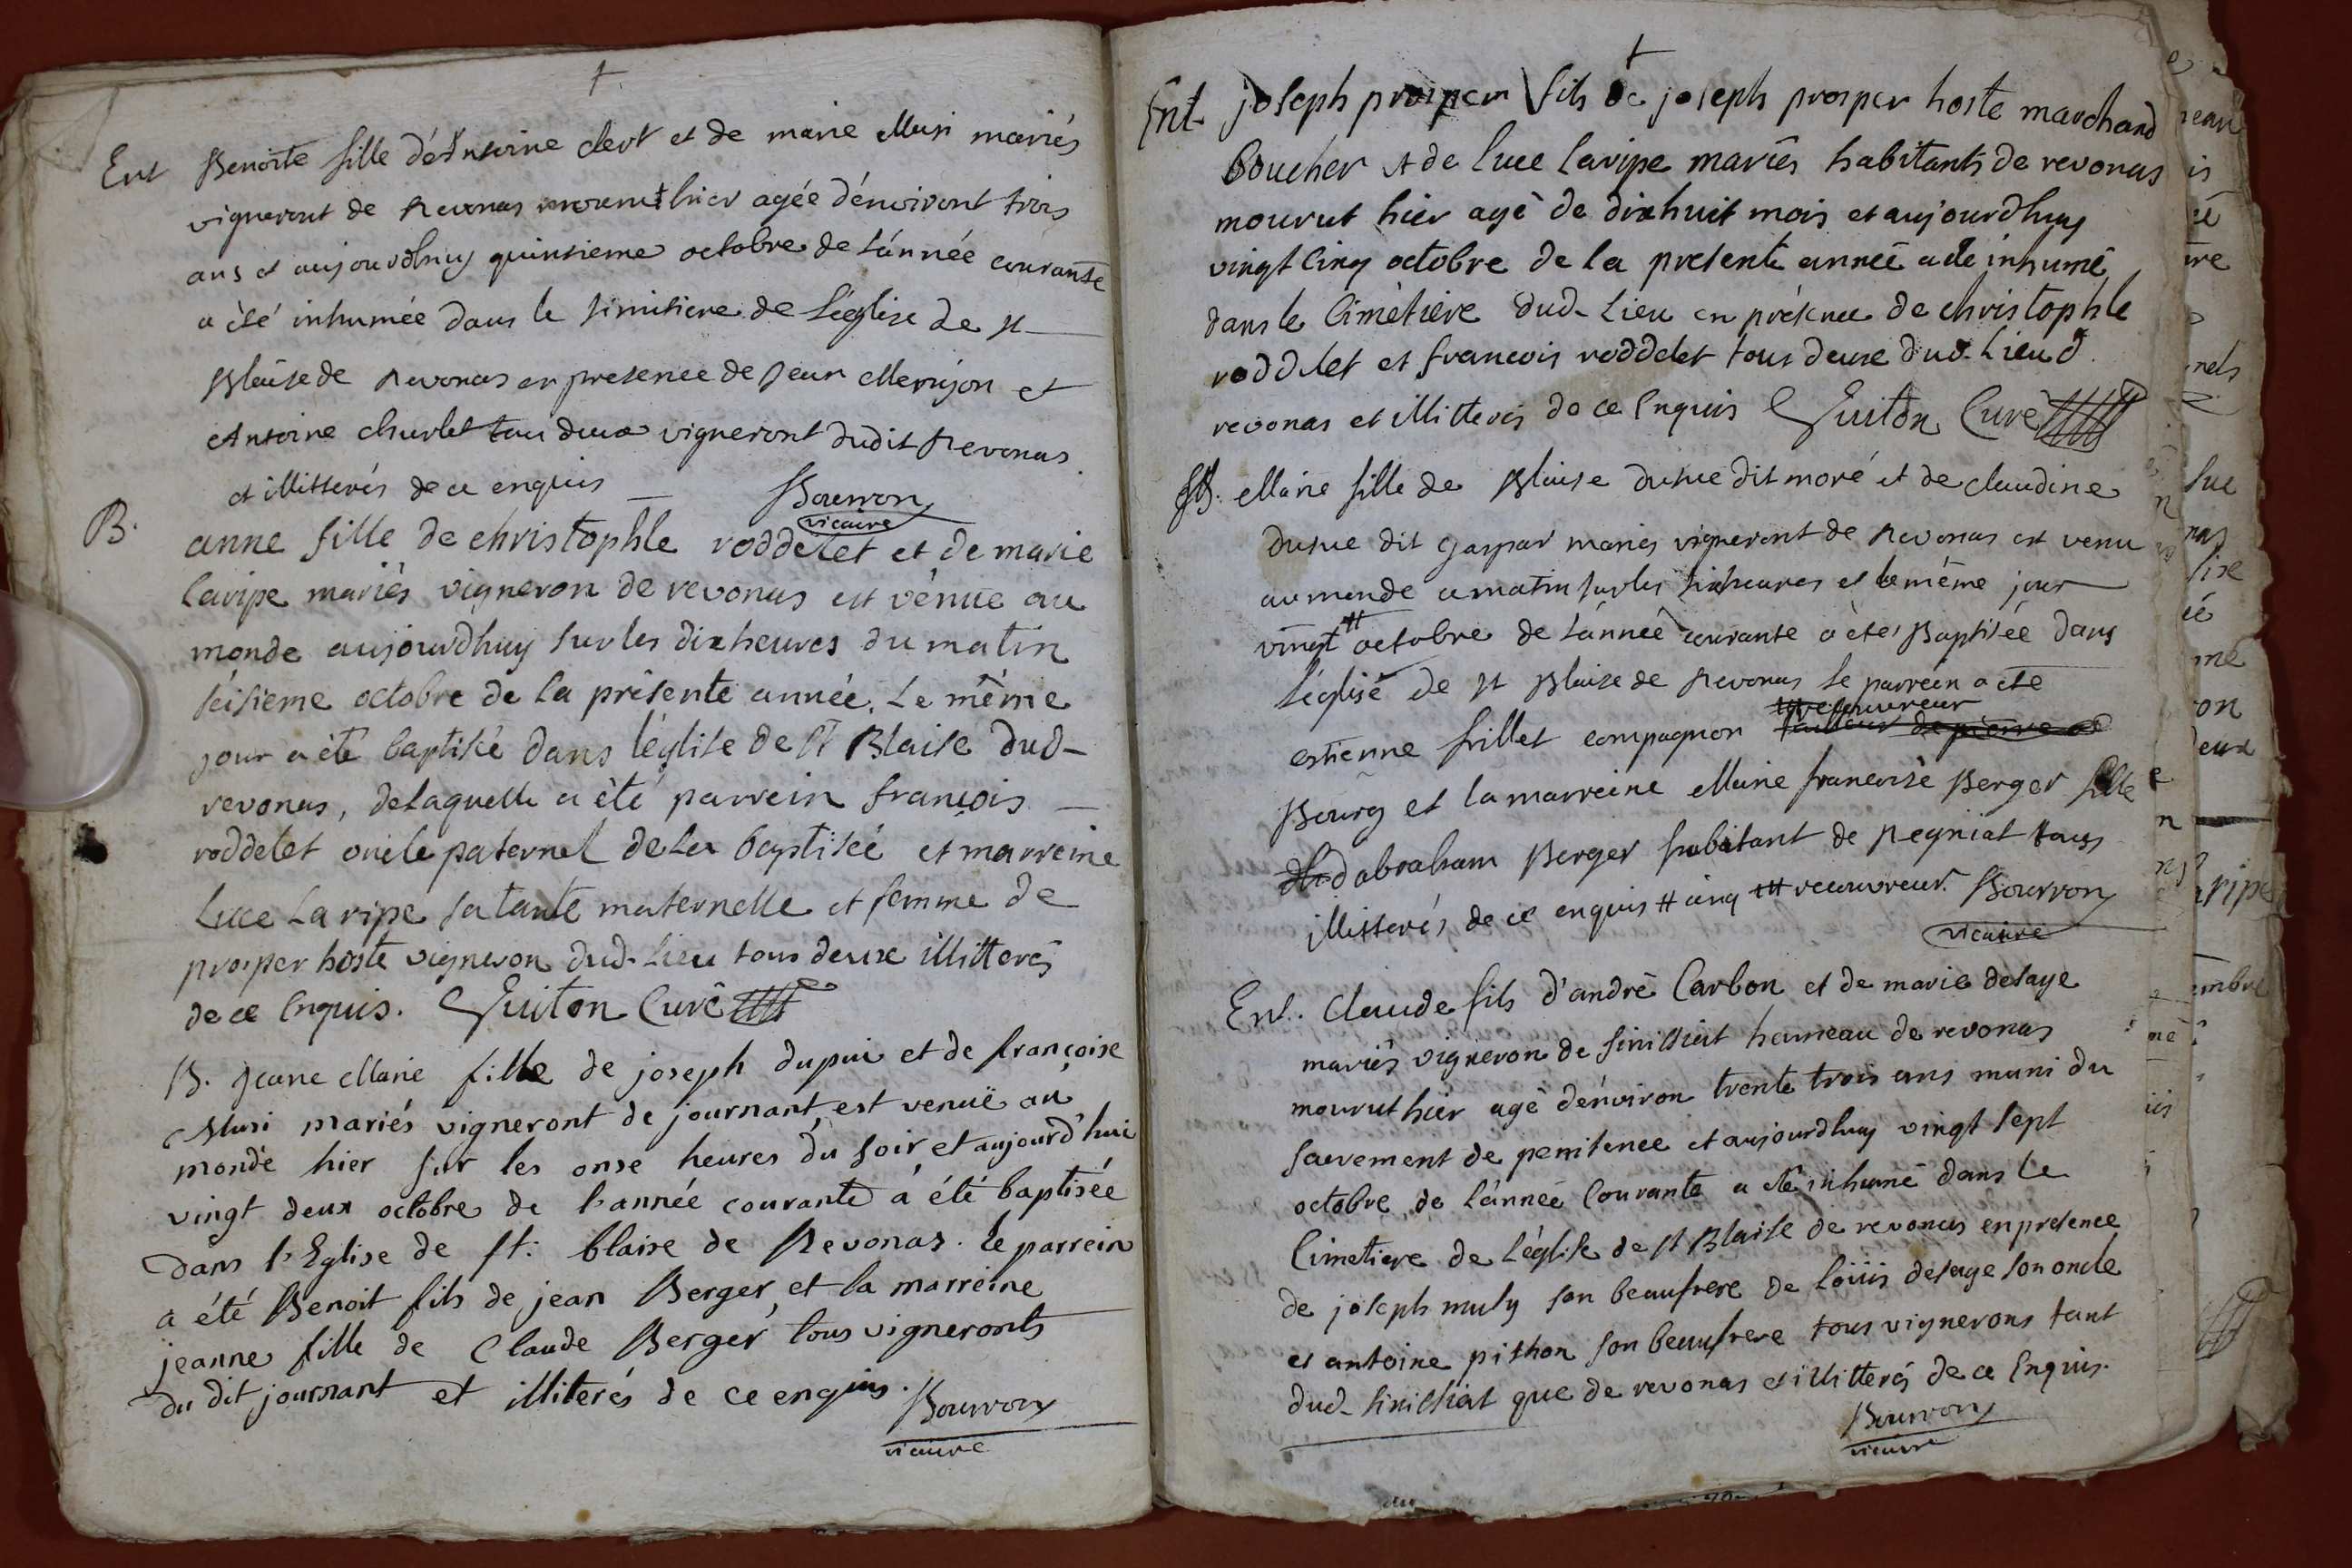 †
Ent Benoite fille d'éAntoine clert et de marie Musi mariés
vigneront de Revonas mourut hier agée d'énviront trois
ans et aujourdhuy quinsieme octobre de l'année courante
a été inhumée dans le simitiere de l'église de st
Blaise de Revonas en presence de Jean Merujon et
Antoine churlet tou deux vigneront dudit Revonas
et illitterés de ce enquis Bourron
vicaire
B. anne fille de christophle roddelet et de marie
laripe mariés vigneron de revonas est vénue au
monde aujourdhuy sur les dix heures du matin
seisieme octobre de la présente année. Le même
jour a été baptisée dans l'église de St Blaise dud-
revonas, delaquelle a été parrein françois
roddelet oncle paternel de la baptisée et marreine
Luce Laripe sa tante maternelle et femme de
prosper hoste vigneron dud. lieu tous deux illitterés
de ce Enquis. Guiton Curé
B. Jeane Marie fille de joseph dupui et de françoise
Musi mariés vigneront de journant, est venuë au
monde hier sur les onse heures du soir et aujourd'hui
vingt deux octobre de l'année courante a été baptisée
dans l'Eglise de st: blaise de Revonas. le parrein
a été Benoit fils de jean Berger, et la marreine
jeanne fille de Claude Berger tous vigneronts
du dit journant et illiterés de ce enquis. Bourron
vicaire
†
Ent. joseph prosper fils de joseph prosper hoste marchand
boucher et de luce laripe mariés habitants de revonas
mourut hier agé de dixhuit mois et aujourdhuy
vingt cinq octobre de la presente année a été inhumé
dans le Cimètiere dud- Lieu en présence de christophle
roddelet et francois roddelet tous deux dud. Lieu d
revonas et illitterés de ce Enquis Guiton Curé
B. Marie fille de Blaise dusue dit moré et de claudine
dusue dit gaspar mariés vigneront de Revonas est venu
au monde ce matin sur les six heures et le même jour
vingt # octobre de l'année courante a été Baptisée dans
l'église de st Blaise de Revonas le parrein a été
estienne frillet compagnon ## recouvreur tailleur de pierre de
Bourg et la marreine Marie francoise Berger fille
d'abraham Berger habitant de Regniat tous
illitterés de ce enquis # cinq ## recouvreur. Bourron
vicaire
Ent. Claude fils d'andré Carbon et de marie delaye
mariés vigneron de sinissiat hameau de revonas
mourut hier agé d'énviron trente trois ans muni du
sacrement de penitence et aujourdhuy vingt sept
octobre de l'année Courante a été inhumé dans le
Cimetiere de l'église de st Blaise de revonas en presence
de joseph muly son beaufrere de loüis delaye son oncle
et antoine pithon son beaufrere tous vignerons tant
dud- sinissiat que de revonas et illitterés de ce Enquis.
Bourron
vicaire